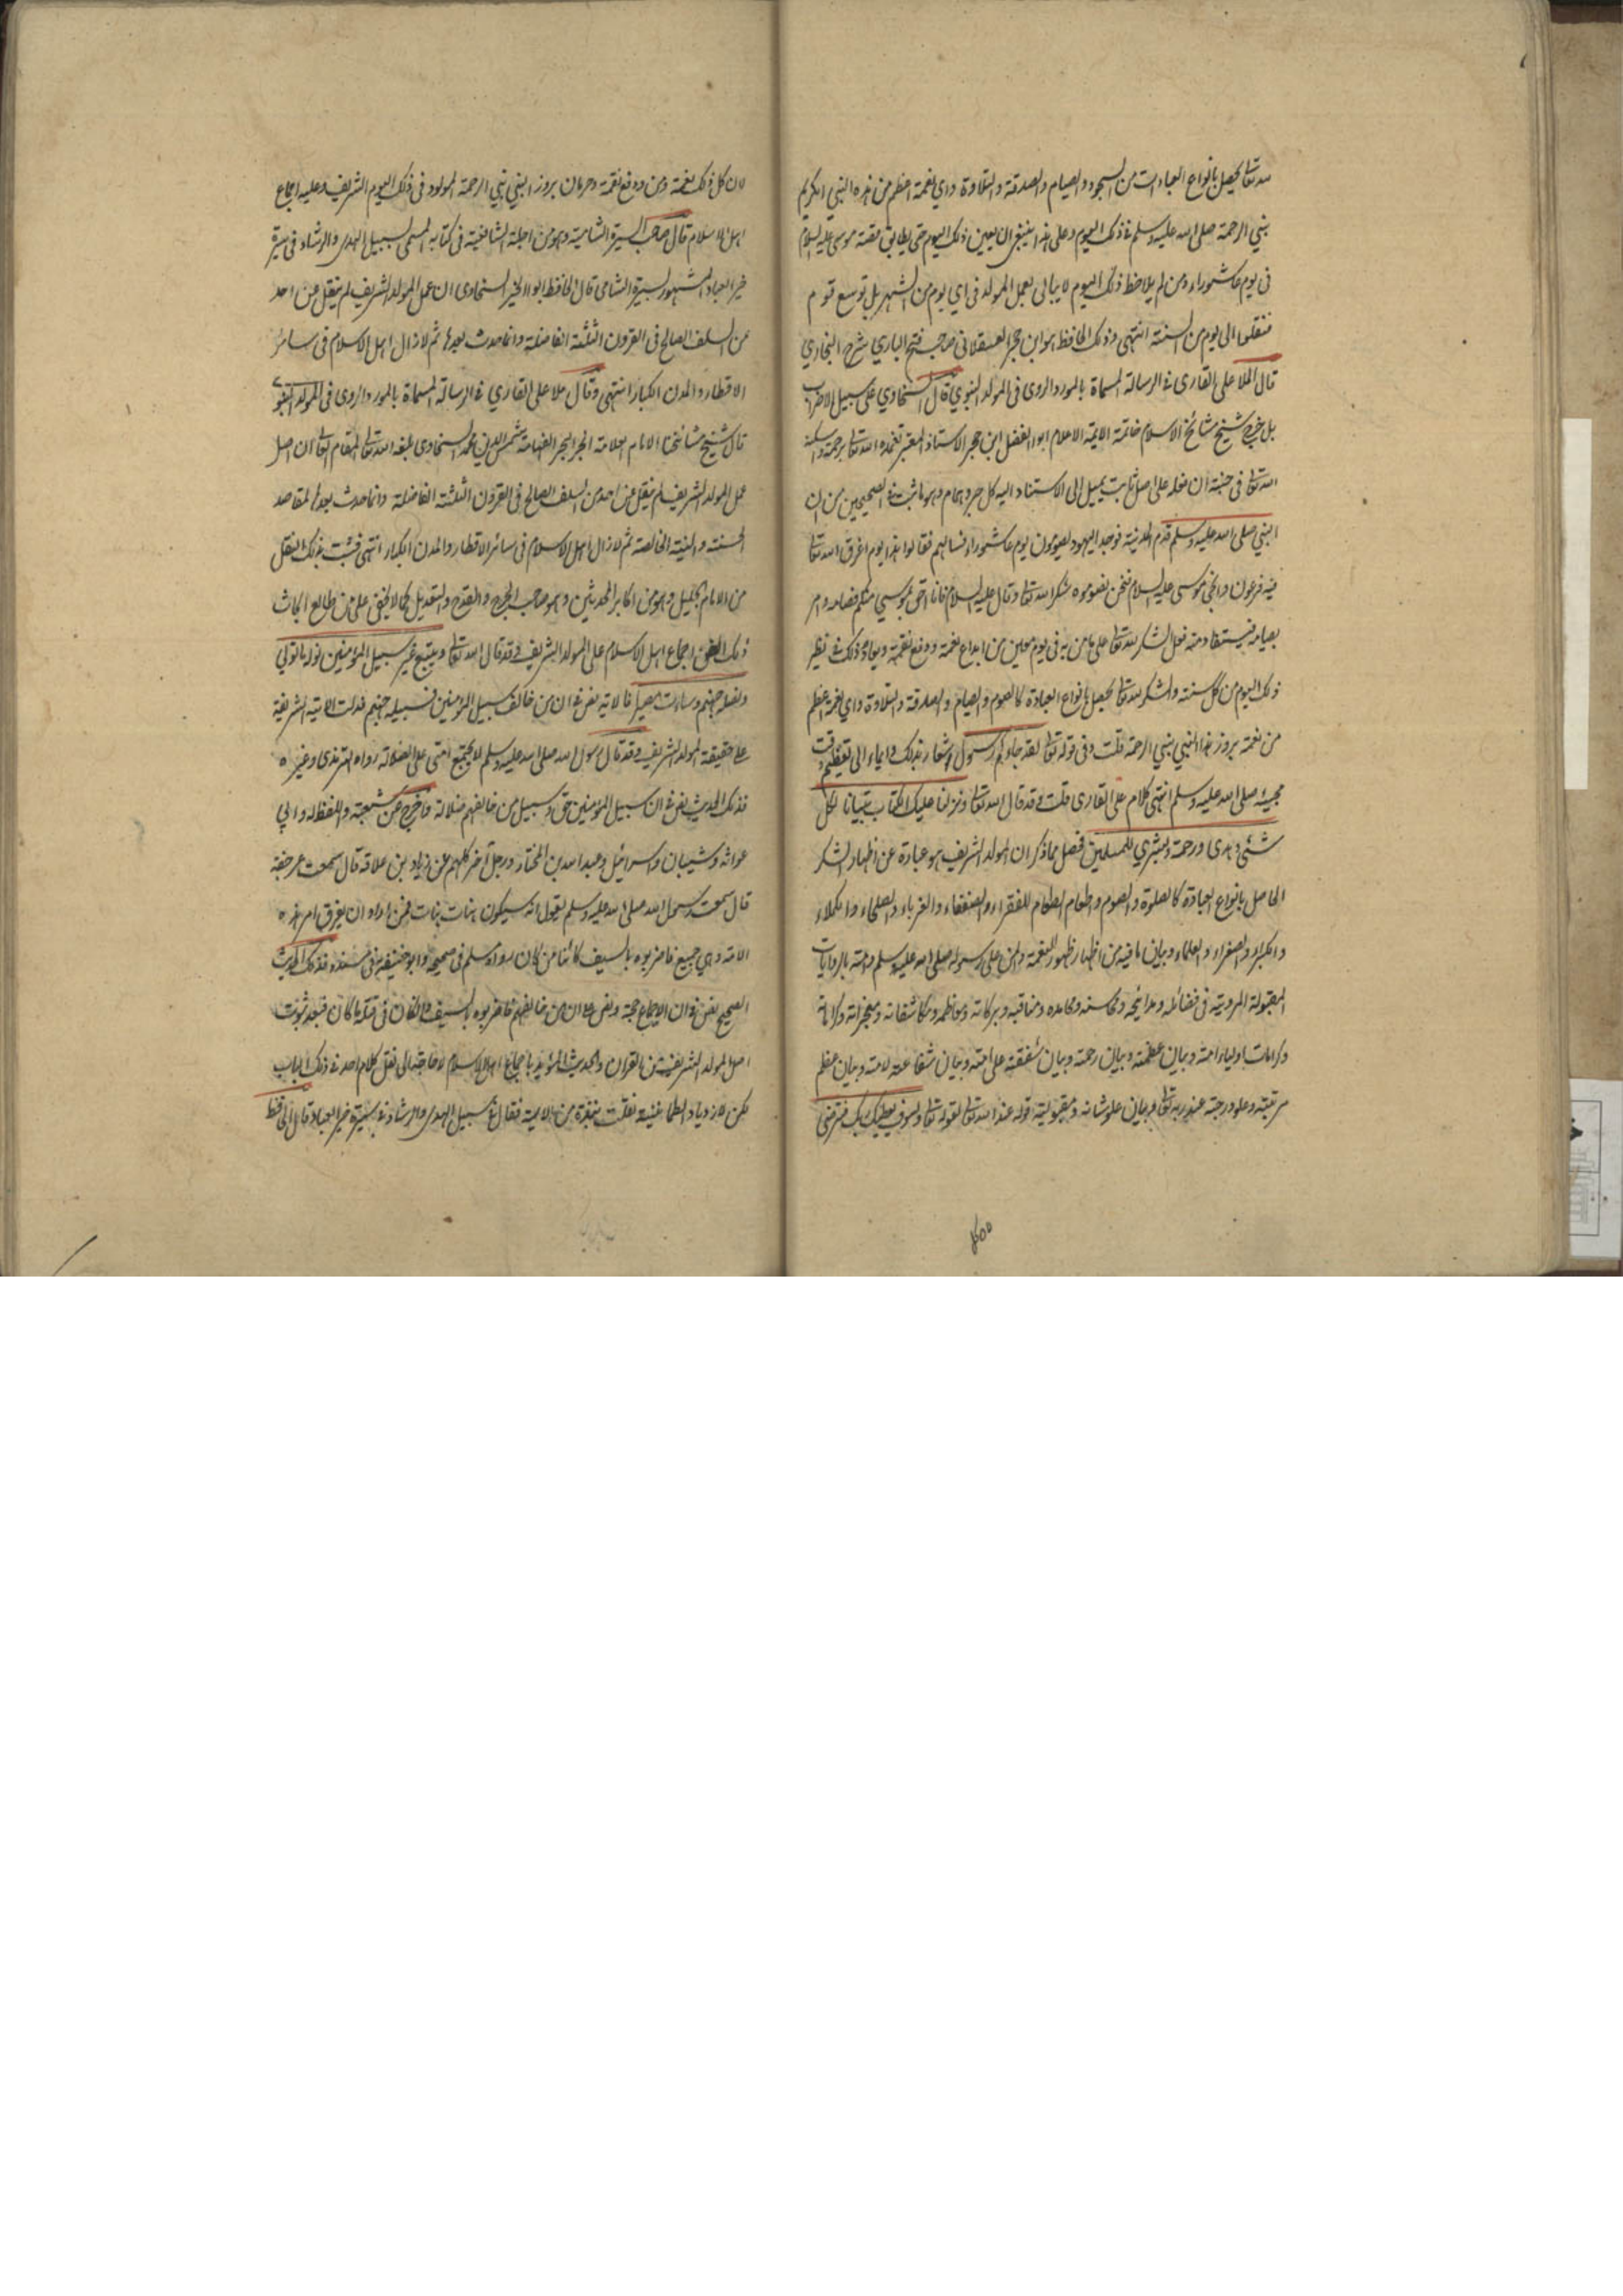 لله تعالى يحصل بانواع العبادات من السجود والصيام والصدقة والتلاوة واي نعمة اعظم من هذه النبي الكريم
نبي الرحمة صلى الله عليه وسلم في ذلك اليوم وعلى هذا ينبغي ان يعين ذلك اليوم حتى يطابق قصة موسى عليه السلام
في يوم عاشوراء ومن لم يلاحظ ذلك اليوم لا يبالي بعمل المولد في اي يوم من الشهر بل توسع قوم
فنقلوا الى يوم من السنة انتهى وذلك الحافظ هو ابن حجر العسقلاني صاحب فتح الباري شرح البخاري
قال الملا علي القاري في الرسالة المسماة بالمورد الروي في المولد النبوي قال السخاوي على سبيل الاضراب
بل خرج شيخ مشائخ الاسلام خاتمة الايمة الاعلام ابو الفضل ابن حجر الاستاذ المعتبر تغمده الله تعالى برحمته واسكنه
الله تعالى في جنته ان فعله على اصل ثابت يميل الى الاستناد اليه كل حبر وهمام وهو ما ثبت في الصحيحين من ان
النبي صلى الله عليه وسلم قدم المدينة فوجد اليهود يصومون يوم عاشوراء فسالهم فقالوا هذا يوم اغرق الله تعالى
فيه فرعون وانجى موسى عليه السلام فنحن نصومه شكرا لله تعالى وقال عليه السلام فانا احق بموسى منكم فصامه وامر
بصيامه فيستفاد منه فعل الشكر لله تعالى على ما من به في يوم معين من ابداع نعمة ودفع نقمة ويعاد ذلك في نظير
ذلك اليوم من كل سنة والشكر لله تعالى يحصل بانواع العبادة كالصوم والصيام والصدقة والتلاوة واي نعمة اعظم
من نعمة بروز هذا النبي نبي الرحمة قلت وفي قوله تعالى لقد جاءكم رسول اشعار بذلك وايماء الى تعظيم وقت
مجيئه صلى الله عليه وسلم انتهى كلام علي القاري قلت وقد قال الله تعالى ونزلنا عليك الكتاب تبيانا لكل
شئ وهدى ورحمة وبشرى للمسلمين فحصل مما ذكر ان المولد الشريف هو عبارة عن اظهار الشكر
الحاصل بانواع العبادة كالصلوة والصوم واطعام الطعام للفقراء والضعفاء والغرباء والصلحاء والكملاء
والكبراء والصغراء والعلماء وبيان ما فيه من اظهار ظهور النعمة والمن على رسوله صلى الله عليه وسلم وامته بالروايات
المقبولة المروية في فضائله ومدائحه ومحاسنه ومحامده ومناقبه وبركاته ومكاشفاته ومعجزاته وكراماته
وكرامات اولياء امته وبيان عظمته وبيان رحمته وبيان شفقته على امته وبيان شفاعته لامته وبيان عظم
مرتبته وعلو درجته عند ربه تعالى وبيان علو شانه ومقبولية قوله عند الله تعالى لقوله تعالى ولسوف يعطيك ربك فترضى
لان كل ذلك نعمة ومن ودفع نقمة وحرمان بروز النبي نبي الرحمة المولود في ذلك اليوم الشريف وعليه اجماع
اهل الاسلام قال صاحب السيرة الشامية وهو من اجلة الشافعية في كتابه المسمى بسبيل الهدى والرشاد في سيرة
خير العباد المشهور بسيرة الشامي قال الحافظ ابو الخير السخاوي ان عمل المولد الشريف لم ينقل عن احد
من السلف الصالح في القرون الثلثة الفاضلة وانما حدث بعدها ثم لا زال اهل الاسلام في سائر
الاقطار والمدن الكبار انتهى وقال ملا علي القاري في الرسالة المسماة بالمورد الروي في المولد النبوي
قال شيخ مشائخنا الامام العلامة الحبر البحر الفهامة شمس الدين محمد السخاوي بلغه الله تعالى المقام العالي ان اصل
عمل المولد الشريف لم ينقل عن احد من السلف الصالح في القرون الثلثة الفاضلة وانما حدث بعدها لمقاصد
الحسنة والنية الخالصة ثم لا زال اهل الاسلام في سائر الاقطار والمدن الكبار انتهى فثبت بذلك النقل
من الامام الجليل وهو من اكابر المحدثين وهو صاحب الجرح والقدح والتعديل كما لا يخفى على من طالع ابحاث
ذلك الفن اجماع اهل الاسلام على المولد الشريف وقد قال الله تعالى ويتبع غير سبيل المؤمنين نوله ما تولى
ونصله جهنم وساءت مصيرا فالاية نص في ان من خالف سبيل المؤمنين فسبيله جهنم فدلت الاية الشريفة
على حقيقة المولد الشريف وقد قال رسول الله صلى الله عليه وسلم لا يجتمع امتي على الضلالة رواه الترمذي وغيره
فذلك الحديث نص في ان سبيل المؤمنين حق وسبيل من خالفهم ضلالة واخرج عن شعبة واللفظ له وابي
عوانة وشيبان واسرائيل وعبد الله بن المختار ورجل آخر كلهم عن زياد بن علاقة قال سمعت عرفجة
قال سمعت رسول الله صلى الله عليه وسلم يقول انه سيكون هنات هنات فمن اراد ان يفرق امر هذه
الامة وهي جميع فاضربوه بالسيف كائنا من كان رواه مسلم في صحيحه وابو حنيفة في مسنده فذلك الحديث
الصحيح نص في ان الاجماع حجة ونص في ان من خالفهم فاضربوه بالسيف فبعد ثبوت
اصل المولد الشريف من القرآن والحديث المؤيد باجماع اهل الاسلام لا حاجة الى نقل كلام احد في ذلك الباب
لكن لازدياد الطمانينة نقلت نبذة من الايمة فقال في سبيل الهدى والرشاد في سيرة خير العباد قال الحافظ